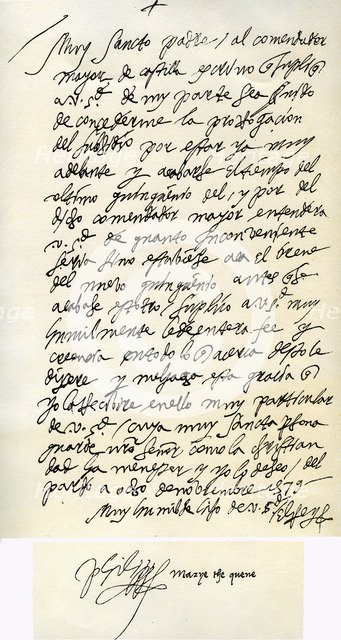 +
Muy Sancto padre / al comendador
mayor de castilla escrivo q supliq
a v. s.d de my parte sea servido
de concederme la prorogacion
del subsidio por estar ya muy
adelante y acabarse el tiempo del
ultimo quinquenio del, y por del
dicho comendador mayor entendera
v. s.d de quanto inconveniente
seria sino estubiese aca el breve
del nuevo quinquenio antes q se
acabase estotro / suplico a v. s.d muy
humilmente le de entera fee y
creencia en todo lo q acerca desto le
dixere y me haga esta gracia q
yo la recibire en ello muy particular
de v. s.d / cuya muy sancta persona
guarde nro señor como la christian
dad ha menester y yo lo deseo / del
pardo a ocho de noviembre 1579
Muy humilde hijo de v. s.d
marye the quene